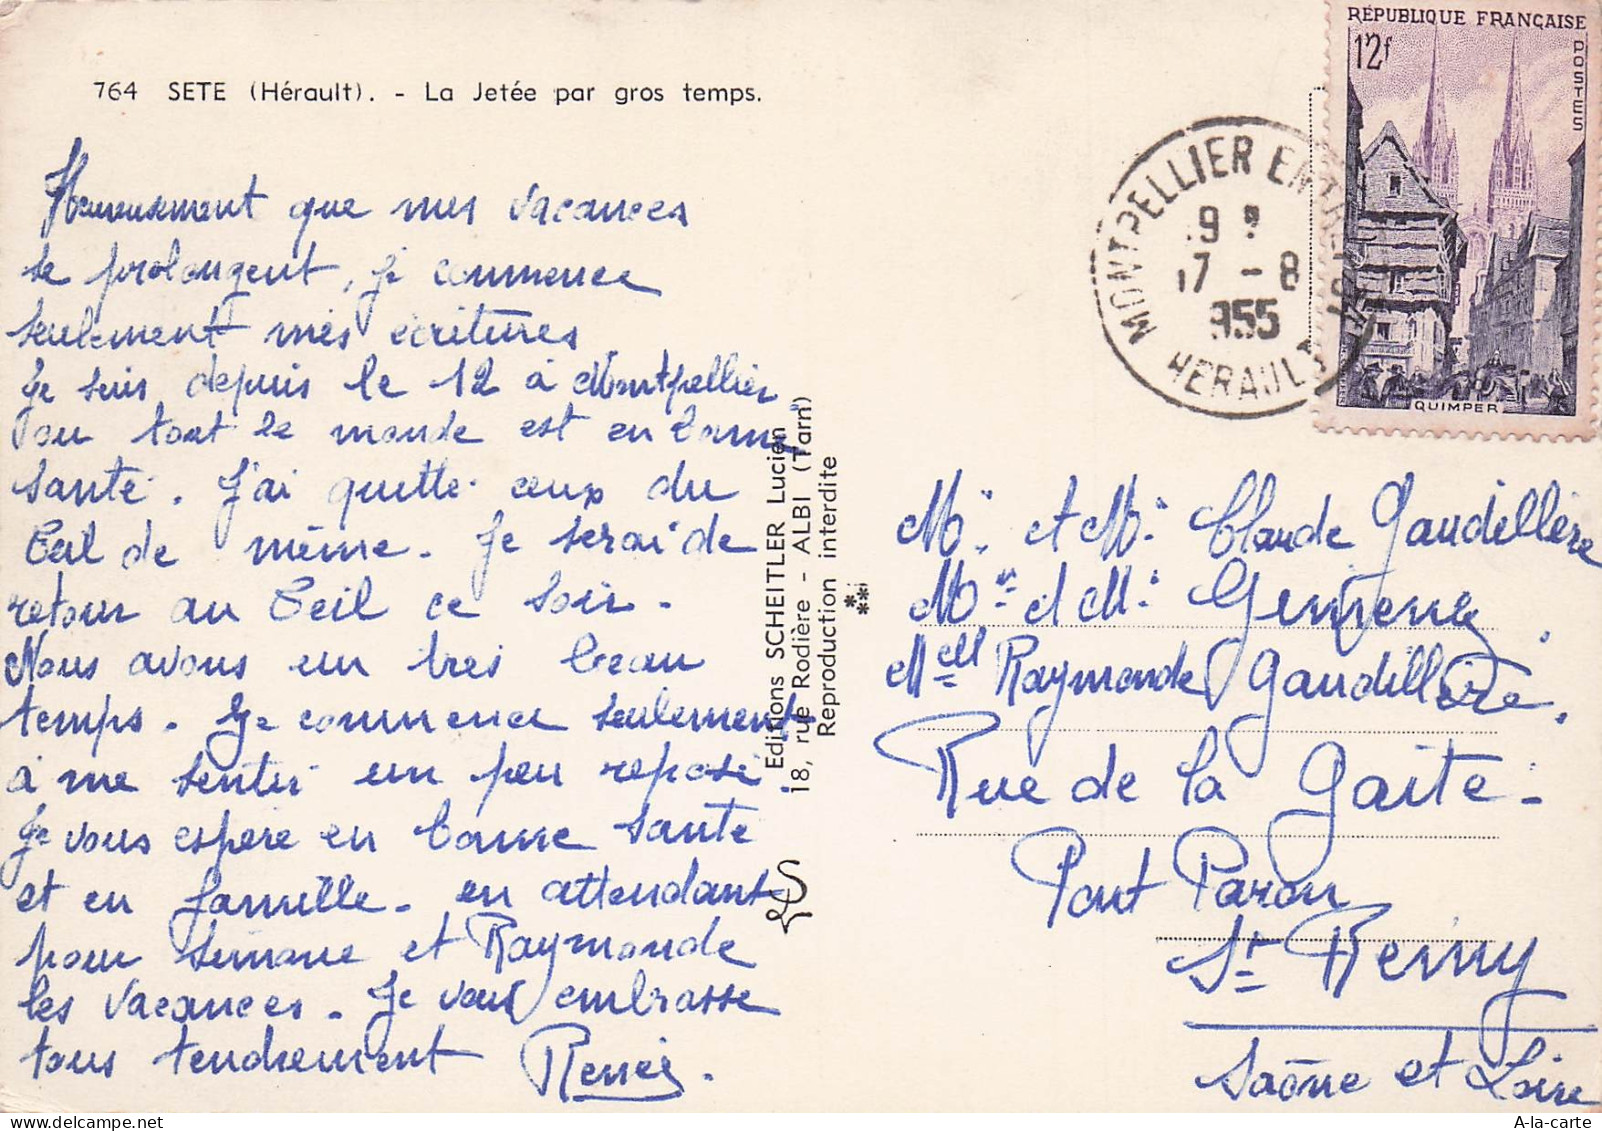 764 SETE (Hérault). - La Jetée par gros temps.
Heureusement que mes vacances
se prolongent, je commence
seulement mes écritures
Je suis depuis le 12 à Montpellier
ou tout le monde est en bonne
santé. J'ai quitté ceux du
Teil de même. Je serai de
retour au Teil ce soir.
Nous avons un très beau
temps. Je commence seulement
à me sentir un peu reposé.
Je vous espère en bonne santé
et en famille. en attendant
pour Simone et Raymonde
les vacances. Je vous embrasse
tous tendrement Renée.
Editions SCHEITLER Lucien
18, rue Rodière - ALBI (Tarn)
Reproduction interdite
RÉPUBLIQUE FRANÇAISE
12f
POSTES
QUIMPER
MONTPELLIER ENTREPOT
19
17 - 8
1955
HERAULT
Mr. et Me. Claude Gaudillère
Mr et Me
Melle Raymonde Gaudillère.
Rue de la Gaité.
Pont Paron
St Remy
Saône et Loire
A-la-carte